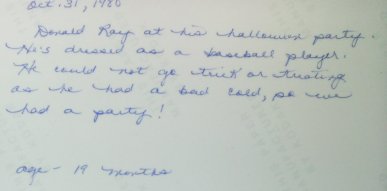 Oct. 31, 1980
Donald Ray at his halloween party.
He's dressed as a baseball player.
He could not go trick or treating
as he had a bad cold, so we
had a party!
age - 19 months